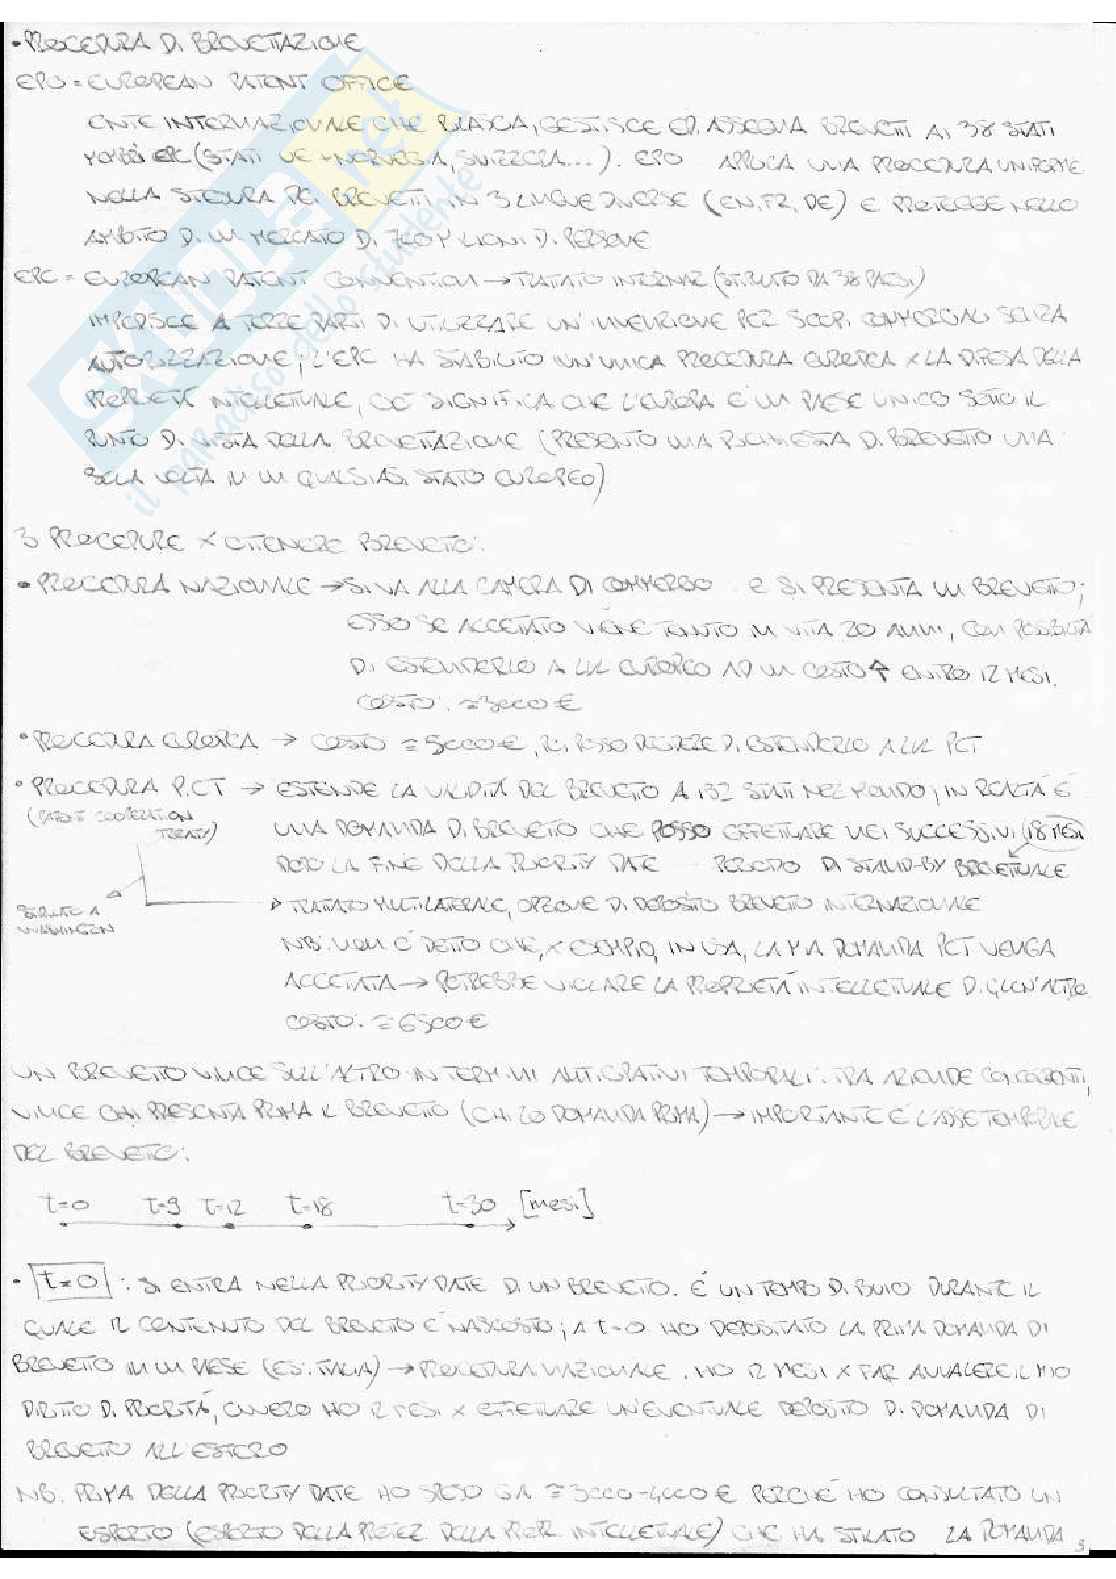 • PROCEDURA DI BREVETTAZIONE
EPO = EUROPEAN PATENT OFFICE
ENTE INTERNAZIONALE CHE RILASCIA, GESTISCE ED ASSEGNA BREVETTI AI 38 STATI
MEMBRI EPC (STATI UE + NORVEGIA, SVIZZERA...). EPO APPLICA UNA PROCEDURA UNIFORME
NELLA STESURA DEI BREVETTI IN 3 LINGUE DIVERSE (EN, FR, DE) E PROTEGGE NELLO
AMBITO DI UN MERCATO DI MILIONI DI PERSONE
EPC = EUROPEAN PATENT CONVENTION → TRATTATO INTERNAZ (STIPULATO DA 38 PAESI)
IMPEDISCE A TERZE PARTI DI UTILIZZARE UN'INVENZIONE PER SCOPI COMMERCIALI SENZA
AUTORIZZAZIONE; L'EPC HA STABILITO UN'UNICA PROCEDURA EUROPEA X LA DIFESA DELLA
PROPRIETÀ INTELLETTUALE, CIÒ SIGNIFICA CHE L'EUROPA È UN PAESE UNICO SOTTO IL
PUNTO DI VISTA DELLA BREVETTAZIONE (PRESENTO UNA RICHIESTA DI BREVETTO UNA
SOLA VOLTA IN UN QUALSIASI STATO EUROPEO)
3 PROCEDURE X OTTENERE BREVETTO:
• PROCEDURA NAZIONALE → SI VA ALLA CAMERA DI COMMERCIO E SI PRESENTA UN BREVETTO;
ESSO SE ACCETTATO VIENE TENUTO IN VITA 20 ANNI, CON POSSIBILITÀ
DI ESTENDERLO A LIV. EUROPEO AD UN COSTO ↑ ENTRO 12 MESI.
COSTO: ≅ 3000 €
• PROCEDURA EUROPEA → COSTO ≅ 5000 €, POI POSSO DECIDERE DI ESTENDERLO A LIV. PCT
• PROCEDURA P.CT → ESTENDE LA VALIDITÀ DEL BREVETTO A 132 STATI NEL MONDO; IN REALTÀ È
(PATENT COOPERATION
TREATY)
UNA DOMANDA DI BREVETTO CHE POSSO EFFETTUARE NEI SUCCESSIVI (18 MESI
DOPO LA FINE DELLA PRIORITY DATE PERIODO DI STAND-BY BREVETTUALE
STIPULATO A
WASHINGTON
TRATTATO MULTILATERALE, OPZIONE DI DEPOSITO BREVETTO INTERNAZIONALE
NB: NON È DETTO CHE, X ESEMPIO, IN USA, LA MIA DOMANDA PCT VENGA
ACCETTATA → POTREBBE VIOLARE LA PROPRIETÀ INTELLETTUALE DI QUALCUN'ALTRO
COSTO: ≅ 6500 €
UN BREVETTO VINCE SULL'ALTRO IN TERMINI ANTICIPATIVI TEMPORALI: TRA AZIENDE CONCORRENTI,
VINCE CHI PRESENTA PRIMA IL BREVETTO (CHI LO DOMANDA PRIMA) → IMPORTANTE È L'ASSE TEMPORALE
DEL BREVETTO:
t=0 t=9 t=12 t=18 t=30 [mesi]
• t=0 : SI ENTRA NELLA PRIORITY DATE DI UN BREVETTO. È UN TEMPO DI BUIO DURANTE IL
QUALE IL CONTENUTO DEL BREVETTO È NASCOSTO; A t=0 HO DEPOSITATO LA PRIMA DOMANDA DI
BREVETTO IN UN PAESE (ES: ITALIA) → PROCEDURA NAZIONALE. HO 12 MESI X FAR AVVALERE IL MIO
DIRITTO DI PRIORITÀ, OVVERO HO 12 MESI X EFFETTUARE UN'EVENTUALE DEPOSITO DI DOMANDA DI
BREVETTO ALL'ESTERO
NB: PRIMA DELLA PRIORITY DATE HO SPESO GIÀ ≅ 3000-4000 € PERCHÉ HO CONSULTATO UN
ESPERTO (ESPERTO DELLA DELLA INTELLETTUALE) CHE HA STILATO LA DOMANDA
3
SKUOLA.net
il paradiso dello studente